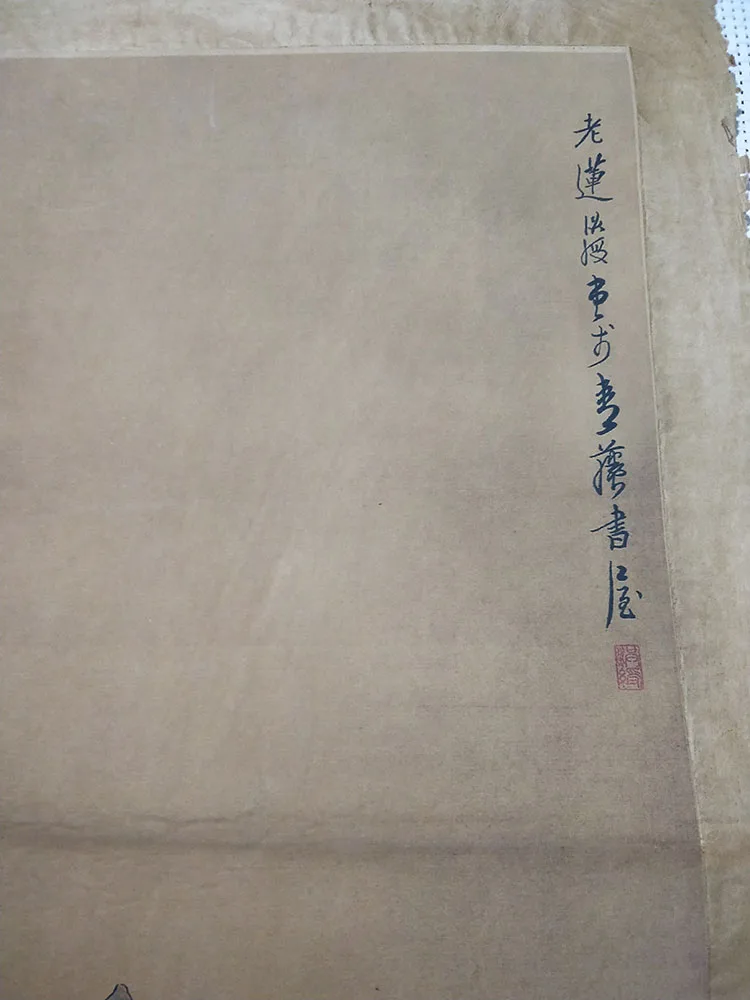 老蓮洪綬畫于青藤書屋